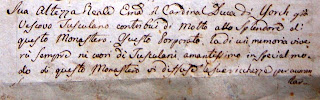 Sua Altezza Reale Em̃a il Cardinal Duca di York già
Vescovo Tusculano contribuì di Molto allo Splendore di
questo Monastero. Questo Porporato la di cui memoria vive
rà sempre ne cuori di Tusculani amantissimo in special mo
do di questo Monastero si diffuse